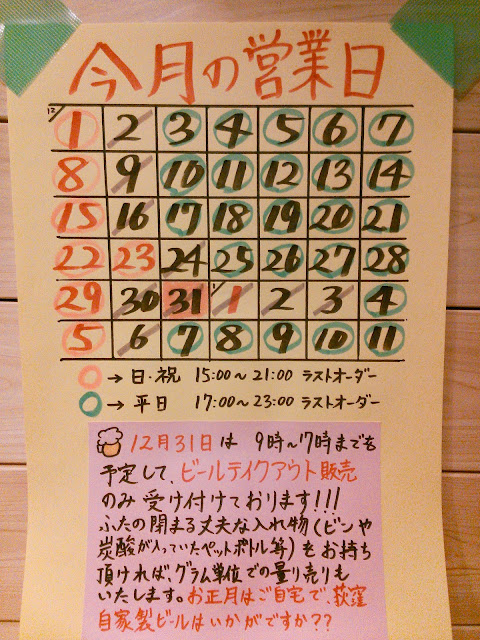 今月の営業日
12/
1 2 3 4 5 6 7
8 9 10 11 12 13 14
15 16 17 18 19 20 21
22 23 24 25 26 27 28
29 30 31 1/ 1 2 3 4
5 6 7 8 9 10 11
→ 日・祝 15:00～21:00 ラストオーダー
→ 平日 17:00～23:00 ラストオーダー
12月31日は 9時～17時までを
予定して、ビールテイクアウト販売
のみ受け付けております!!!
ふたの閉まる丈夫な入れ物(ビンや
炭酸が入っていたペットボトル等)をお持ち
頂ければ、グラム単位での量り売りも
いたします。お正月はご自宅で、荻窪
自家製ビールはいかがですか??